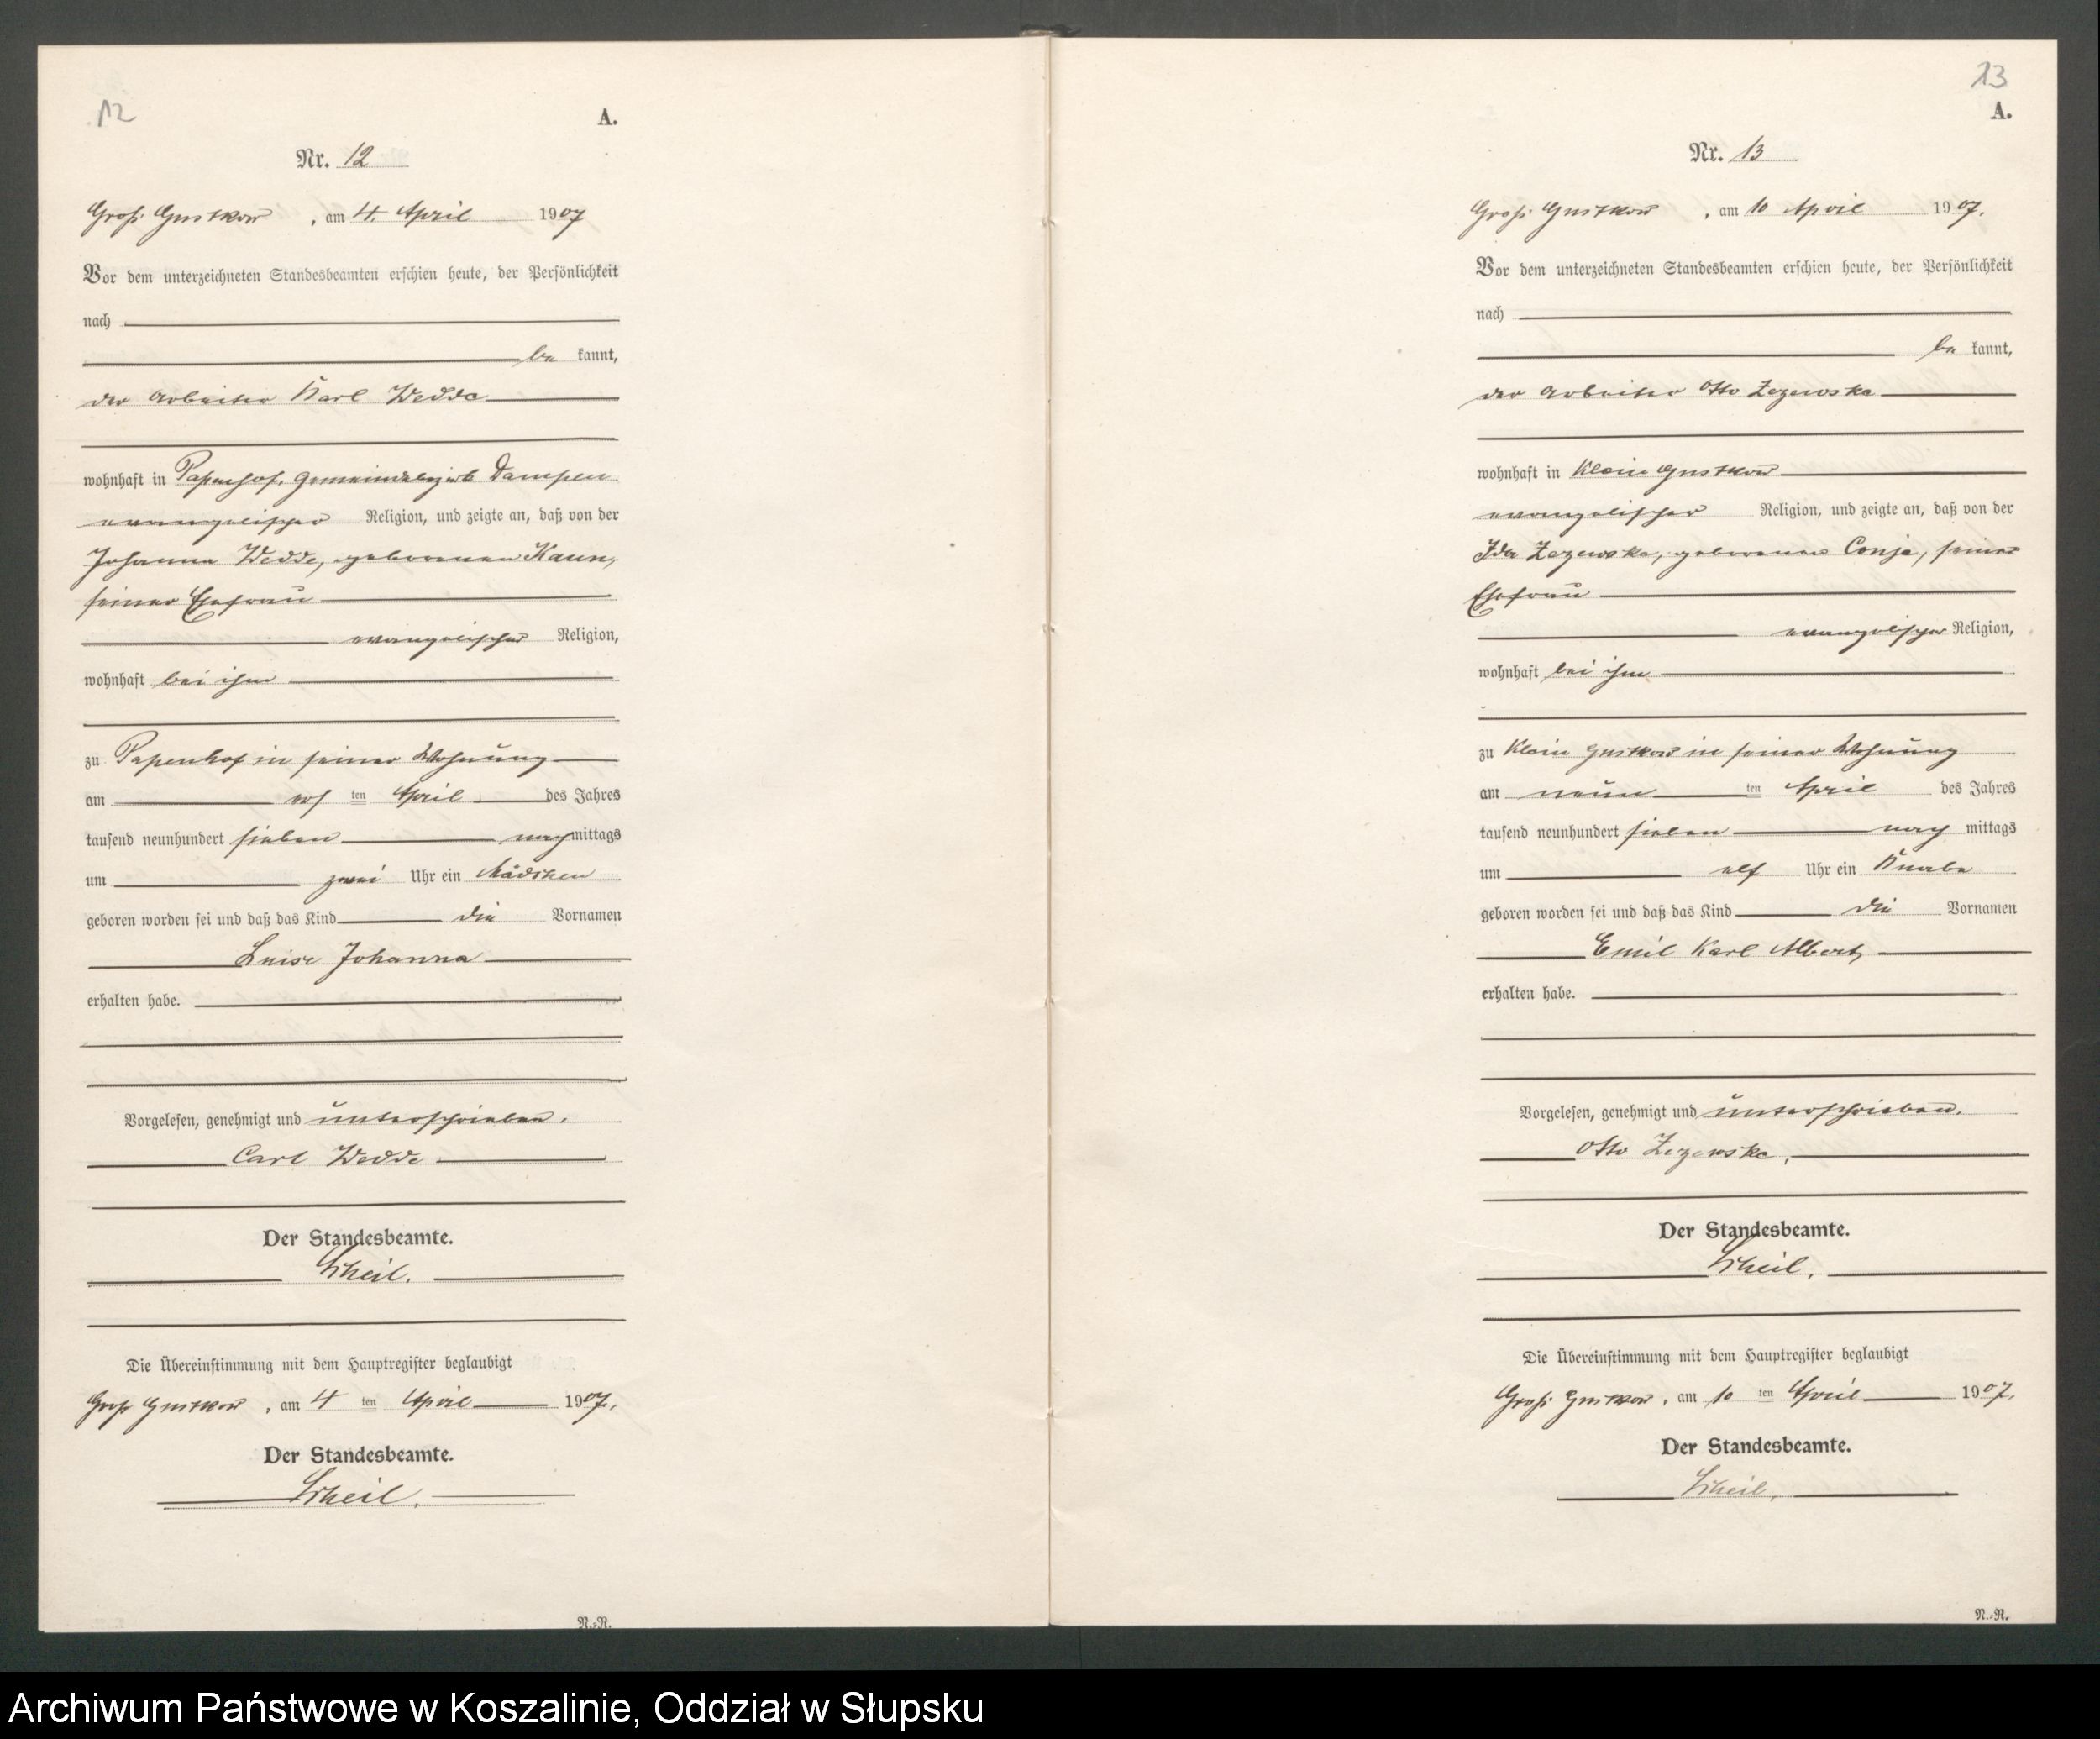 12
A.
Nr. 12
Groß Gustkow, am 4. April 1907
Vor dem unterzeichneten Standesbeamten erschien heute, der Persönlichkeit
nach
be kannt,
der Arbeiter Karl Wedde
wohnhaft in Papenhof, Gemeindebezirk Dampen
evangelischer Religion, und zeigte an, daß von der
Johanna Wedde, geborenen Kaun,
seiner Ehefrau
evangelischer Religion,
wohnhaft bei ihm
zu Papenhof in seiner Wohnung
am ten April des Jahres
tausend neunhundert sieben nachmittags
um zwei Uhr ein Mädchen
geboren worden sei und daß das Kind die Vornamen
Luise Johanna
erhalten habe.
Vorgelesen, genehmigt und unterschrieben.
Carl Wedde
Der Standesbeamte.
Scheil.
Die Übereinstimmung mit dem Hauptregister beglaubigt
Groß Gustkow, am 4 ten April 1907.
Der Standesbeamte.
Scheil.
N.-N.
13
A.
Nr. 13
Groß Gustkow, am 10 April 1907.
Vor dem unterzeichneten Standesbeamten erschien heute, der Persönlichkeit
nach
be kannt,
der Arbeiter Otto Zezewska
wohnhaft in Klein Gustkow
evangelischer Religion, und zeigte an, daß von der
Ida Zezewska, geborenen Conja, seiner
Ehefrau
evangelischer Religion,
wohnhaft bei ihm
zu Klein Gustkow in seiner Wohnung
am neun ten April des Jahres
tausend neunhundert sieben nach mittags
um elf Uhr ein Knabe
geboren worden sei und daß das Kind die Vornamen
Emil Karl Albert
erhalten habe.
Vorgelesen, genehmigt und unterschrieben.
Otto Zezewska.
Der Standesbeamte.
Scheil.
Die Übereinstimmung mit dem Hauptregister beglaubigt
Groß Gustkow, am 10 ten April 1907.
Der Standesbeamte.
Scheil.
N.-N.
Archiwum Państwowe w Koszalinie, Oddział w Słupsku